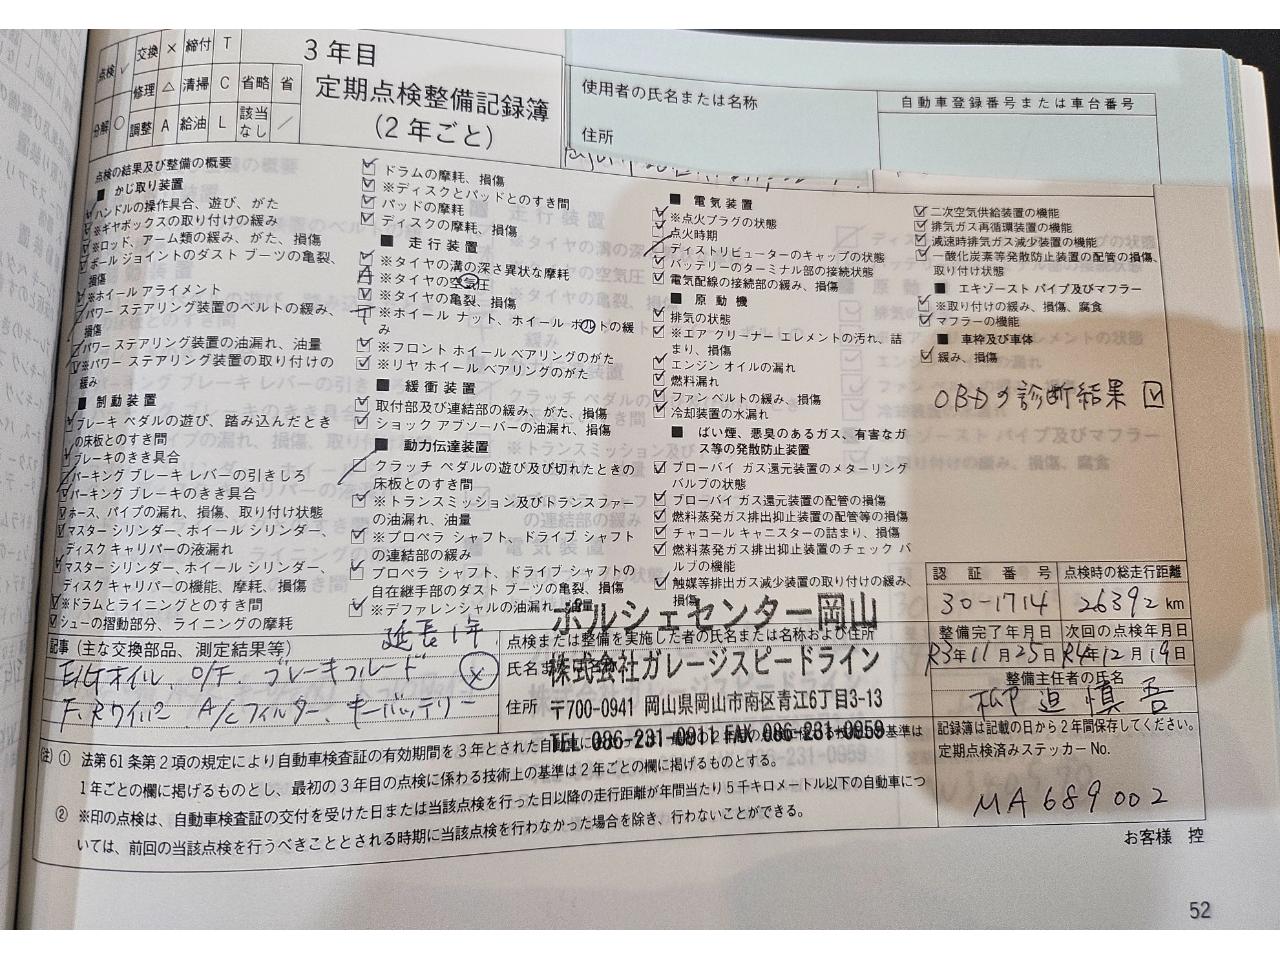 点検 ✓ 交換 × 締付 T
修理 △ 清掃 C 省略 省
分解 ○ 調整 A 給油 L 該当なし ／
3年目
定期点検整備記録簿
(2年ごと)
使用者の氏名または名称
住所
自動車登録番号または車台番号
点検の結果及び整備の概要
■ かじ取り装置
ハンドルの操作具合、遊び、がた
※ギヤボックスの取り付けの緩み
※ロッド、アーム類の緩み、がた、損傷
ボール ジョイントのダスト ブーツの亀裂、
損傷
※ホイール アライメント
パワー ステアリング装置のベルトの緩み、
損傷
パワー ステアリング装置の油漏れ、油量
※パワー ステアリング装置の取り付けの
緩み
■ 制動装置
ブレーキ ペダルの遊び、踏み込んだとき
の床板とのすき間
ブレーキのきき具合
パーキング ブレーキ レバーの引きしろ
パーキング ブレーキのきき具合
ホース、パイプの漏れ、損傷、取り付け状態
マスター シリンダー、ホイール シリンダー、
ディスク キャリパーの液漏れ
マスター シリンダー、ホイール シリンダー、
ディスク キャリパーの機能、摩耗、損傷
※ドラムとライニングとのすき間
シューの摺動部分、ライニングの摩耗
ドラムの摩耗、損傷
※ディスクとパッドとのすき間
パッドの摩耗
ディスクの摩耗、損傷
■ 走行装置
※タイヤの溝の深さ異状な摩耗
※タイヤの空気圧
※タイヤの亀裂、損傷
※ホイール ナット、ホイール ボルトの緩
み
※フロント ホイール ベアリングのがた
※リヤ ホイール ベアリングのがた
■ 緩衝装置
取付部及び連結部の緩み、がた、損傷
ショック アブソーバーの油漏れ、損傷
■ 動力伝達装置
クラッチ ペダルの遊び及び切れたときの
床板とのすき間
※トランスミッション及びトランスファー
の油漏れ、油量
※プロペラ シャフト、ドライブ シャフト
の連結部の緩み
プロペラ シャフト、ドライブ シャフトの
自在継手部のダスト ブーツの亀裂、損傷
※デファレンシャルの油漏れ、油量
■ 電気装置
※点火プラグの状態
点火時期
ディストリビューターのキャップの状態
バッテリーのターミナル部の接続状態
電気配線の接続部の緩み、損傷
■ 原動機
排気の状態
※エア クリーナー エレメントの汚れ、詰
まり、損傷
エンジン オイルの漏れ
燃料漏れ
ファン ベルトの緩み、損傷
冷却装置の水漏れ
■ ばい煙、悪臭のあるガス、有害なガ
ス等の発散防止装置
ブローバイ ガス還元装置のメターリング
バルブの状態
ブローバイ ガス還元装置の配管の損傷
燃料蒸発ガス排出抑止装置の配管等の損傷
チャコール キャニスターの詰まり、損傷
燃料蒸発ガス排出抑止装置のチェック バ
ルブの機能
触媒等排出ガス減少装置の取り付けの緩み、
損傷
二次空気供給装置の機能
排気ガス再循環装置の機能
減速時排気ガス減少装置の機能
一酸化炭素等発散防止装置の配管の損傷、
取り付け状態
■ エキゾースト パイプ及びマフラー
※取り付けの緩み、損傷、腐食
マフラーの機能
■ 車枠及び車体
緩み、損傷
OBDの診断結果 ☑
認証番号 点検時の総走行距離
30-1714 26392 km
整備完了年月日 次回の点検年月日
R3年11月25日 R4年12月19日
整備主任者の氏名
記録簿は記載の日から2年間保存してください。
定期点検済みステッカー No.
MA689002
記事 (主な交換部品、測定結果等) 延長1年
E/Gオイル O/F. ブレーキフルード ×
F.Rワイパー A/Cフィルター、キーバッテリー
点検または整備を実施した者の氏名または名称および住所
氏名または名称
住所
ポルシェセンター岡山
株式会社ガレージスピードライン
〒700-0941 岡山県岡山市南区青江6丁目3-13
TEL 086-231-0911 FAX 086-231-0959
(注) ① 法第61条第2項の規定により自動車検査証の有効期間を3年とされた自動車に
基準は
1年ごとの欄に掲げるものとし、最初の3年目の点検に係わる技術上の基準は2年ごとの欄に掲げるものとする。
② ※印の点検は、自動車検査証の交付を受けた日または当該点検を行った日以降の走行距離が年間当たり5千キロメートル以下の自動車につ
いては、前回の当該点検を行うべきこととされる時期に当該点検を行わなかった場合を除き、行わないことができる。
お客様 控
52